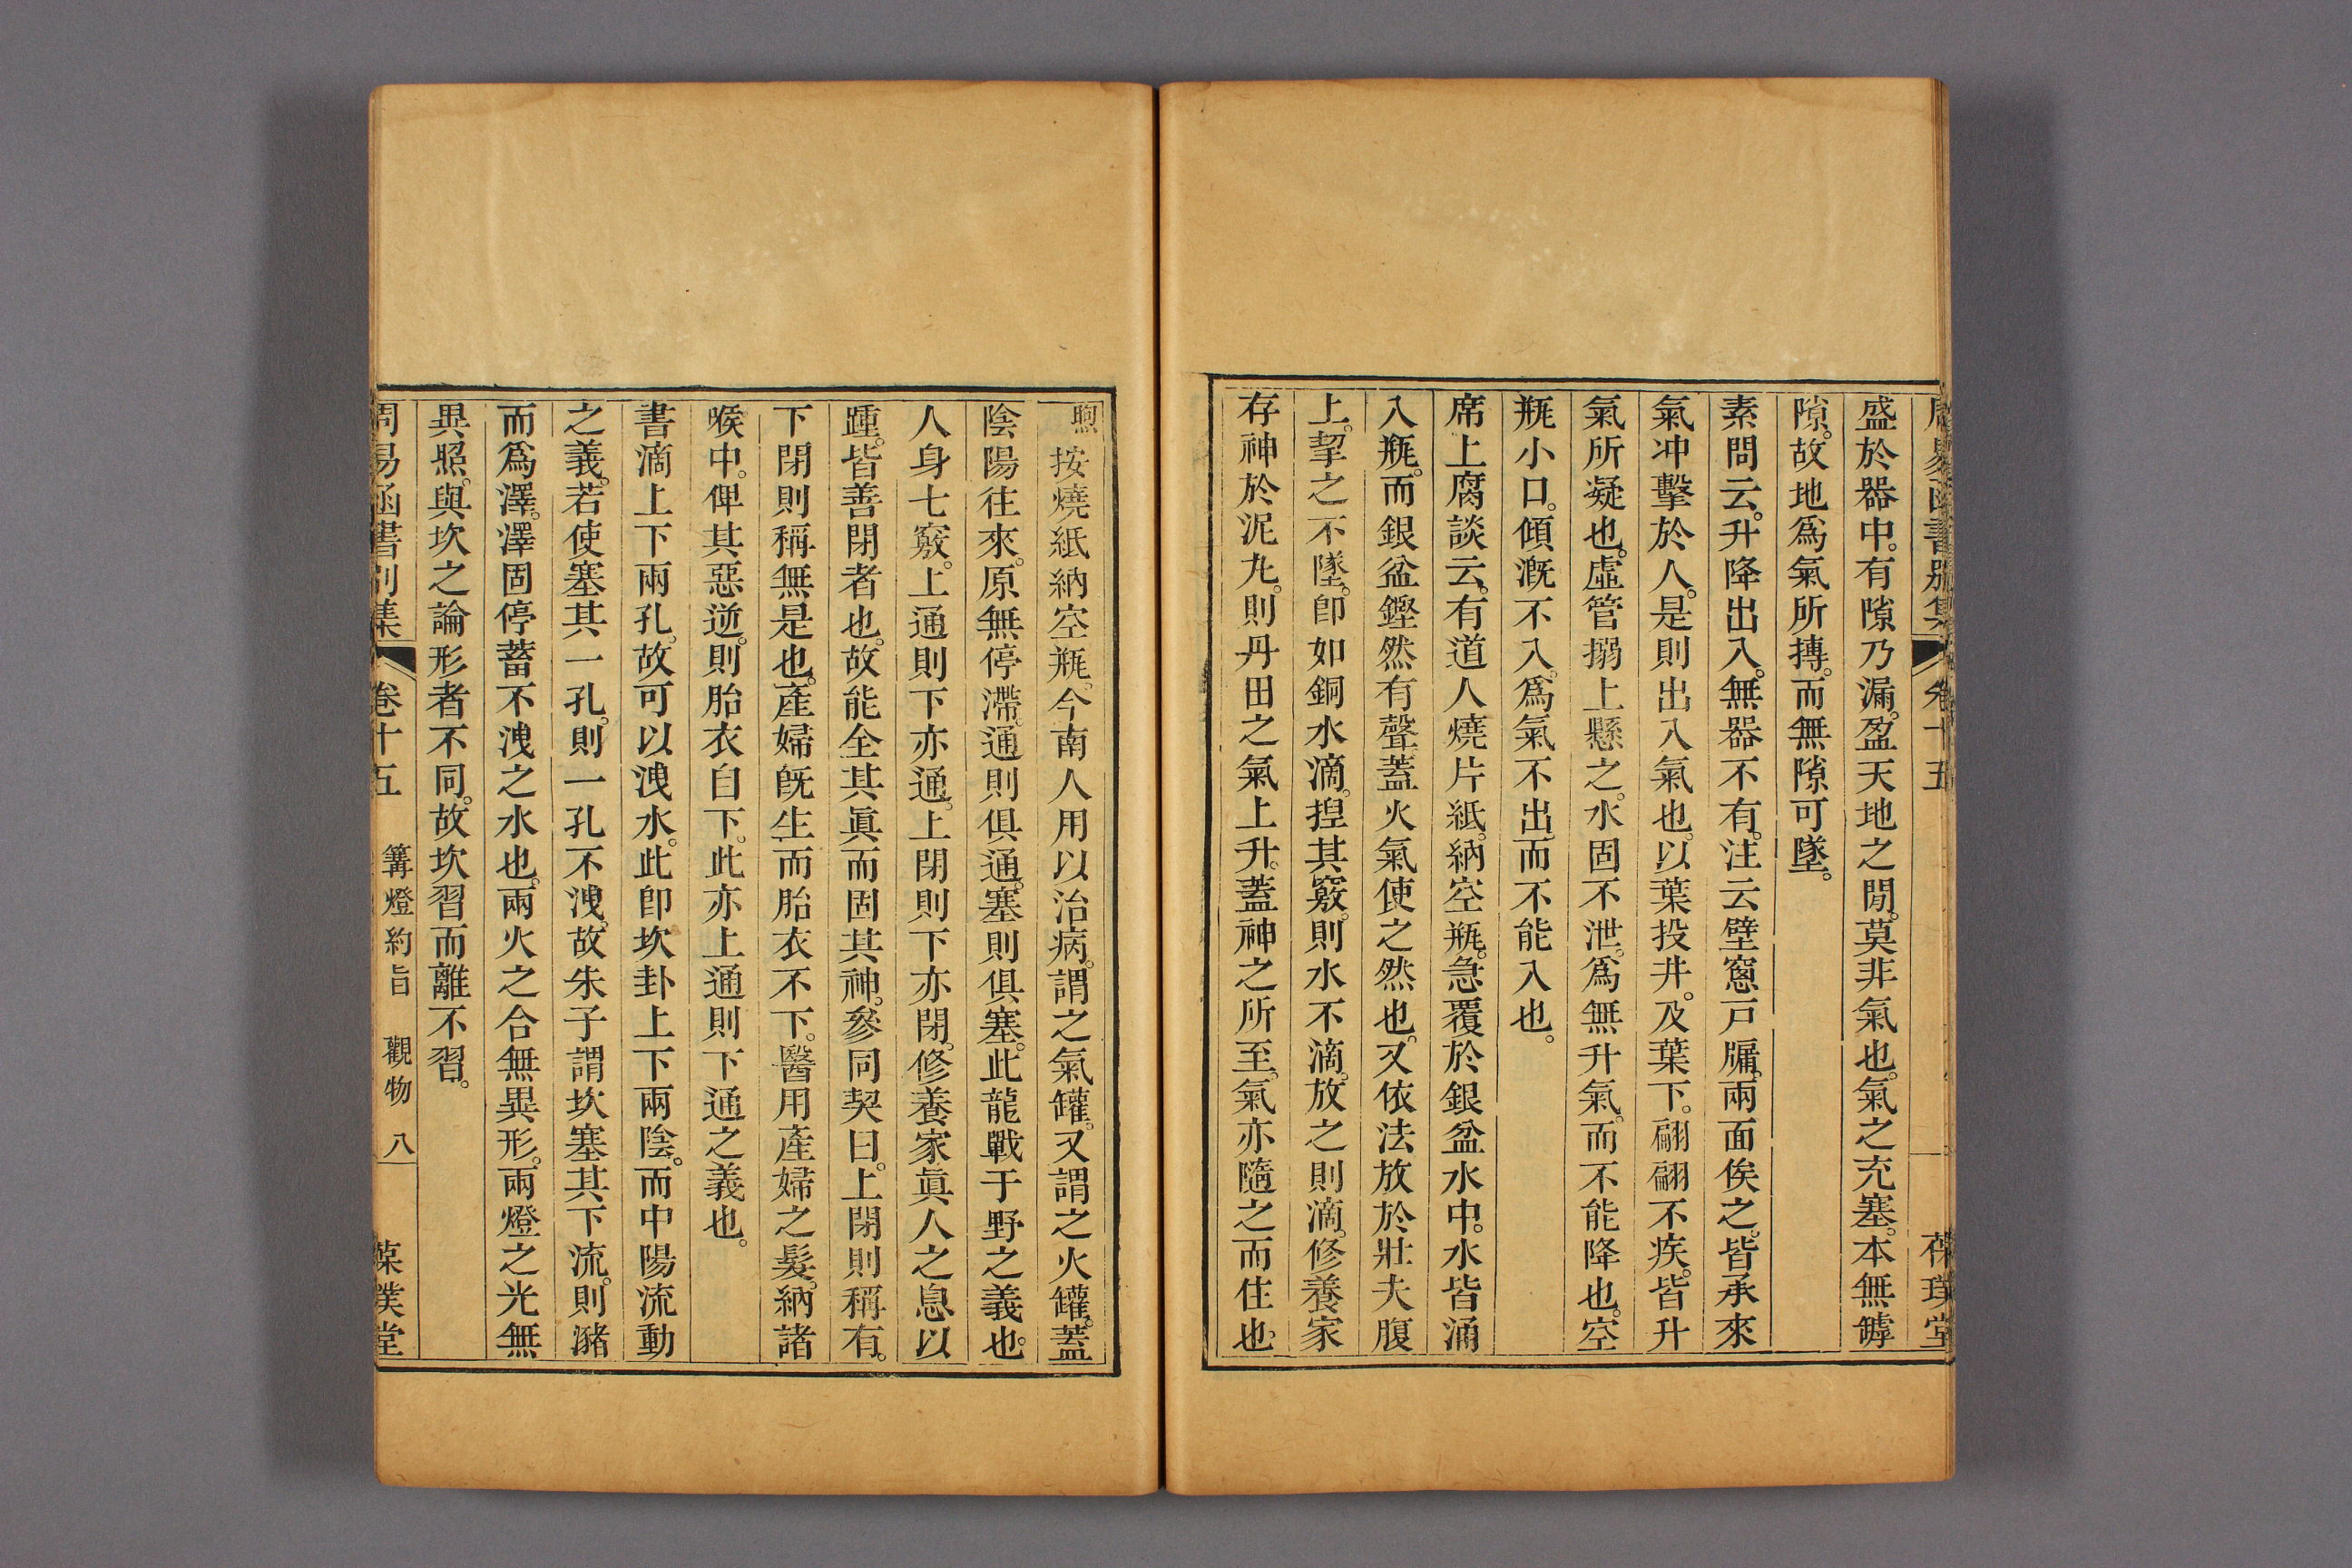 周易函書別集 卷十五 葆璞堂
盛於器中。有隙乃漏。盈天地之閒。莫非氣也。氣之充塞。本無罅
隙。故地爲氣所摶。而無隙可墜。
素問云。升降出入。無器不有。注云壁窻戸牖。兩面俟之。皆承來
氣冲擊於人。是則出入氣也。以葉投井。及葉下。翩翩不疾。皆升
氣所凝也。虛管搦上懸之。水固不泄。爲無升氣。而不能降也。空
瓶小口。傾漑不入。爲氣不出而不能入也。
席上腐談云。有道人燒片紙。納空瓶。急覆於銀盆水中。水皆涌
入瓶。而銀盆鏗然有聲蓋火氣使之然也。又依法放於壯夫腹
上。挈之不墜。卽如銅水滴。揑其竅。則水不滴。放之則滴。修養家
存神於泥九。則丹田之氣上升。蓋神之所至。氣亦隨之而住也。
煦按燒紙納空瓶。今南人用以治病。謂之氣罐。又謂之火罐。蓋
陰陽往來。原無停滯。通則俱通。塞則俱塞。此龍戰于野之義也。
人身七竅。上通則下亦通。上閉則下亦閉。修養家眞人之息以
踵。皆善閉者也。故能全其眞而固其神。參同契曰。上閉則稱有。
下閉則稱無是也。產婦旣生而胎衣不下。醫用產婦之髮。納諸
喉中。俾其惡逆。則胎衣自下。此亦上通則下通之義也。
書滴上下兩孔。故可以洩水。此卽坎卦上下兩陰。而中陽流動
之義。若使塞其一孔。則一孔不洩。故朱子謂坎塞其下流。則瀦
而爲澤。澤固停蓄不洩之水也。兩火之合無異形。兩燈之光無
異照。與坎之論形者不同。故坎習而離不習。
周易函書別集 卷十五 篝燈約旨 觀物 八 葆璞堂